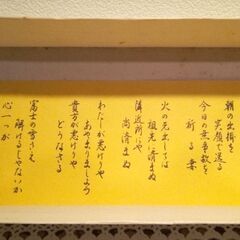 朝の出掛を
笑顔で送る
今日の無事故を
祈る妻
火の元出しては
祖先に済まぬ
隣近所にや
尚済まぬ
わたしが悪けりや
あやまりましよう
貴方が悪けりや
どうなさる
富士の雪さえ
解けるじやないか
心一つが